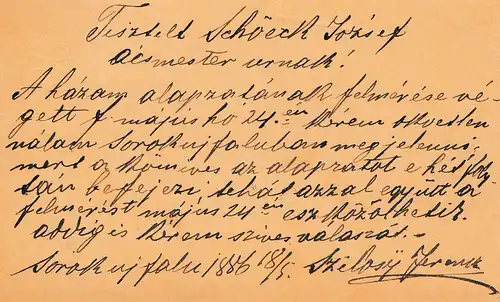 Tisztelt Schöeck József
ácsmester urnak!
A házam alapzatának felmérése vé-
gett f. május hó 24.én kérem okvetlen
nálam Sorokujfaluban megjelenni
mert a kőmíves az alapzatot e hét foly-
tán befejezi, tehát azzal együtt a
felmérést május 24én eszközölhetik.
addig is kérem szíves válaszát. –
Sorokujfalu 1886 18/5. Ferencz